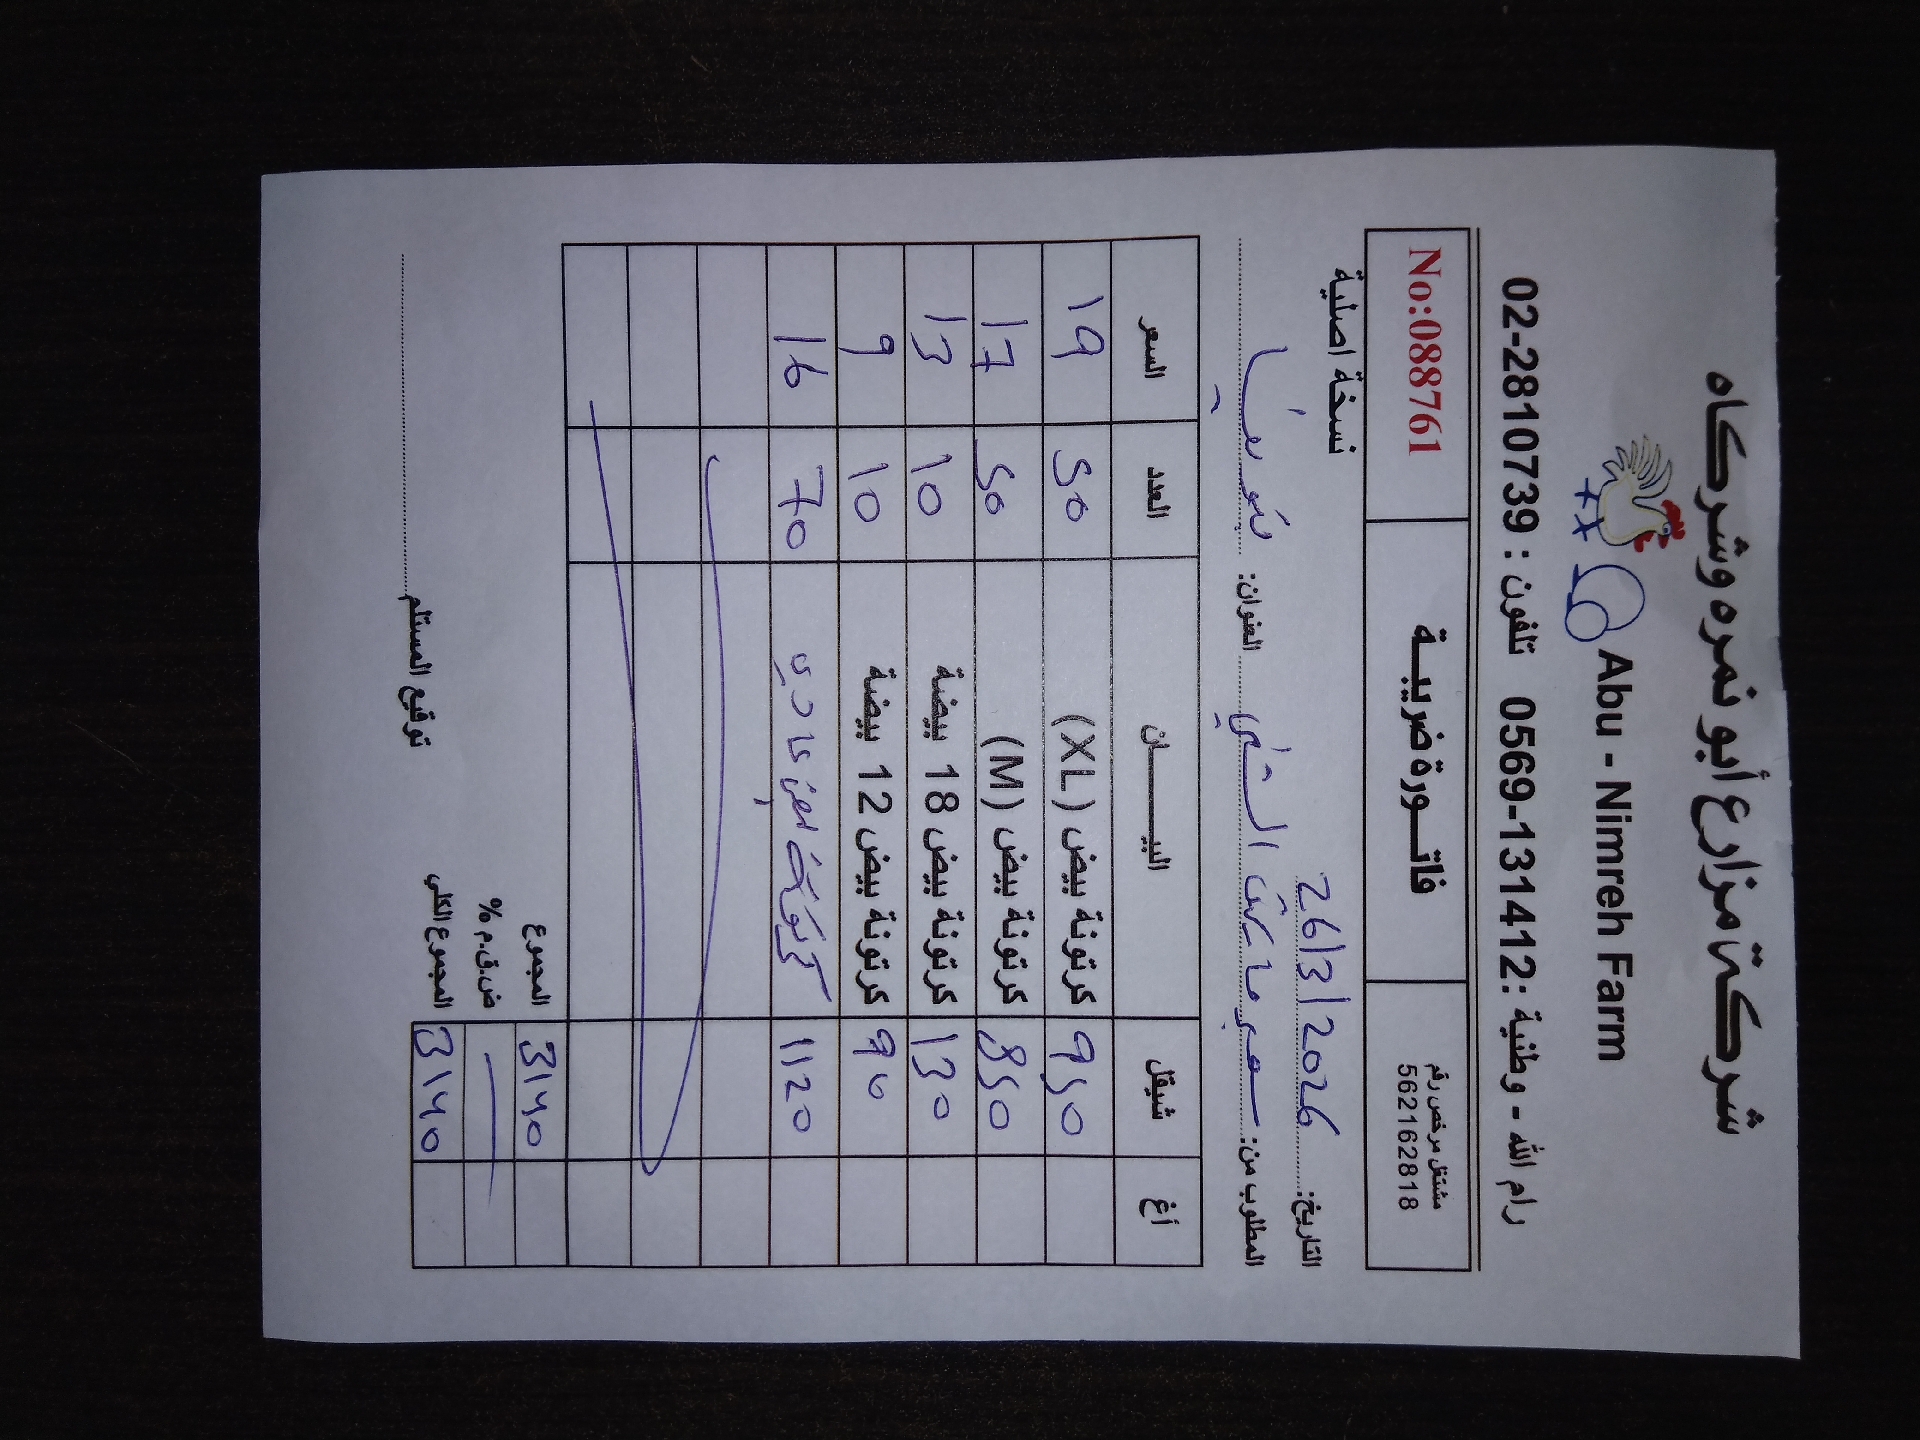 شركة مزارع أبو نمره وشركاه
Abu - Nimreh Farm
رام الله - وطنية : 0569-131412 تلفون : 02-2810739
مشتغل مرخص رقم
562162818
فاتورة ضريبة
No:088761
التاريخ: 26/3/2026
نسخة اصلية
المطلوب من: سوبر ماركت الشني العنوان:
أغ شيقل البيان العدد السعر
950 كرتونة بيض (XL) 50 19
850 كرتونة بيض (M) 50 17
130 كرتونة بيض 18 بيضة 10 13
90 كرتونة بيض 12 بيضة 10 9
1120 كرتونة بيض عادي 70 16
3140 المجموع
ض.ق.م %
3140 المجموع الكلي
توقيع المستلم